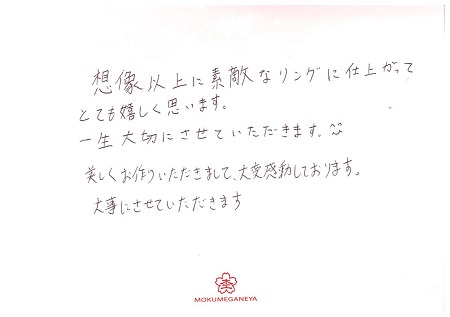 想像以上に素敵なリングに仕上がって
とても嬉しく思います。
一生大切にさせていただきます。
美しくお作りいただきまして、大変感動しております。
大事にさせていただきます
杢
MOKUMEGANEYA